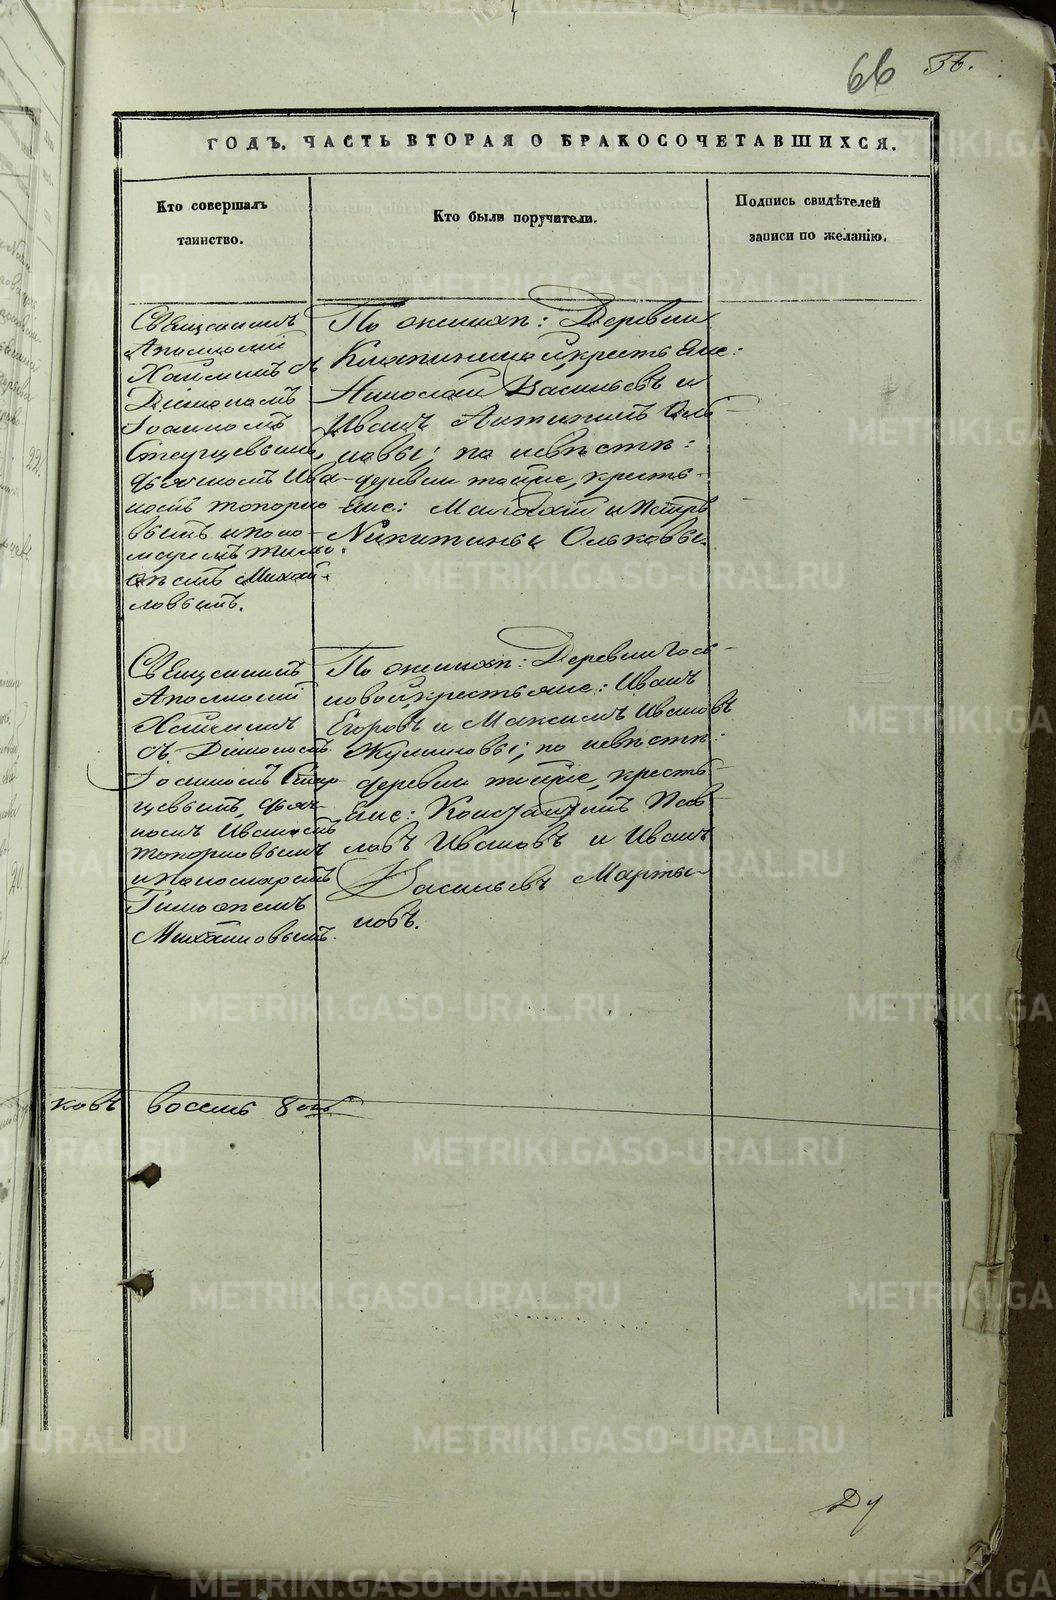 66
ГОДЪ. ЧАСТЬ ВТОРАЯ О БРАКОСОЧЕТАВШИХСЯ.
Кто совершалъ
таинство.
Кто были поручители.
Подпись свидѣтелей
записи по желанію.
Священникъ
Аполлоній
съ
Діакономъ
Іоанномъ
дьячкомъ Ива-
номъ Топорко-
вымъ и поно-
маремъ Тимо-
ѳеемъ Михай-
ловымъ.
По женихѣ: Деревни
крестьяне:
Николай Васильевъ и
Иванъ Антипинъ Оль-
ковы; по невѣстѣ:
деревни тойже, кресть-
яне: и Петръ
Никитины Ольковы.
Священникъ
Аполлоній
съ Діакономъ
Іоанномъ
цевымъ, дьяч-
комъ Иваномъ
Топорковымъ
и пономаремъ
Тимоѳеемъ
Михайловымъ.
По женихѣ: Деревни
новой, крестьяне: Иванъ
Егоровъ и Максимъ Ивановъ
Куликовы; по невѣстѣ:
деревни тойже, кресть-
яне: Константинъ Пав-
ловъ Ивановъ и Иванъ
Васильевъ Марты-
новъ.
ковъ восемь 8
METRIKI.GASO-URAL.RU